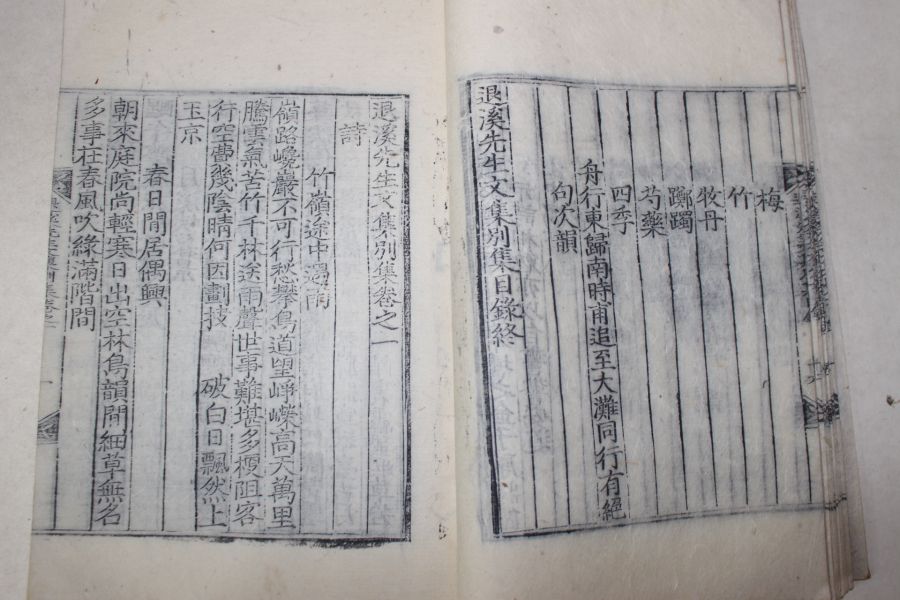 梅
竹
牧丹
躑躅
芍藥
四季
舟行東歸南時甫追至大灘同行有絕
句次韻
退溪先生文集別集目錄終
退溪先生文集別集卷之一
詩
竹嶺途中遇雨
嶺路巉巖不可行愁攀鳥道望崢嶸高天萬里
騰雲氣苦竹千林送雨聲世事難堪多梗阻客
行空費幾陰晴何因劃技 破白日飄然上
玉京
春日閒居偶興
朝來庭院尚輕寒日出空林鳥韻閒細草無名
多事在春風吹綠滿階間